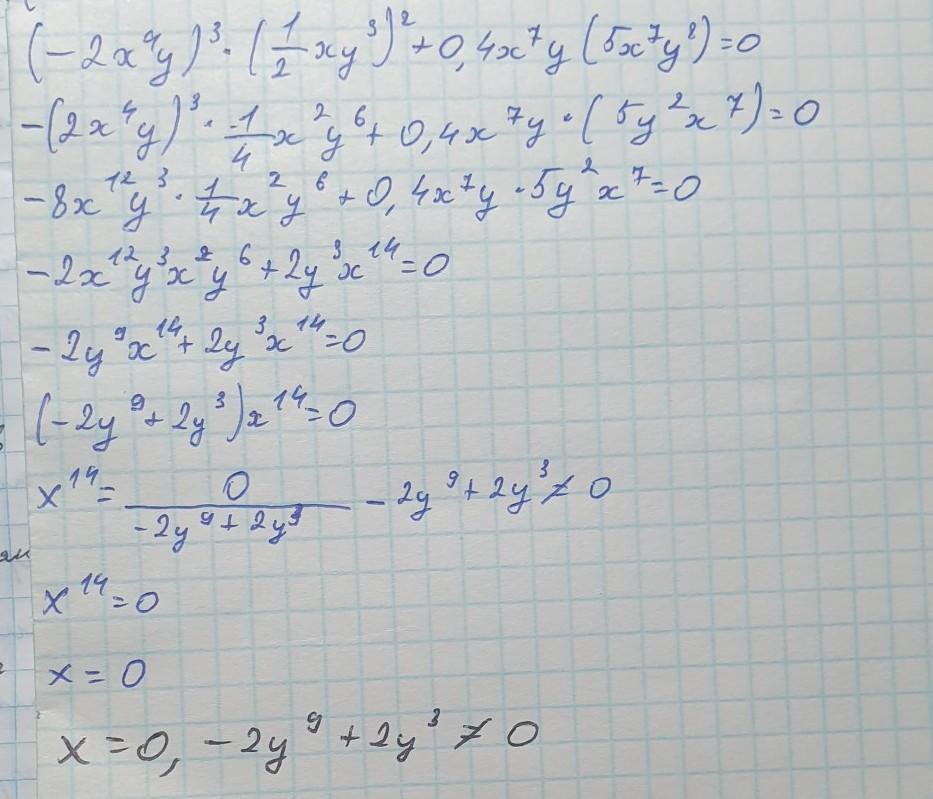 (-2x⁴y)³·(1/2 xy³)²+0,4x⁷y(5x⁷y⁸)=0
-(2x⁴y)³·1/4 x²y⁶+0,4x⁷y·(5y²x⁷)=0
-8x¹²y³·1/4 x²y⁶+0,4x⁷y·5y²x⁷=0
-2x¹²y³x²y⁶+2y³x¹⁴=0
-2y⁹x¹⁴+2y³x¹⁴=0
(-2y⁹+2y³)x¹⁴=0
x¹⁴=0/(-2y⁹+2y³) -2y⁹+2y³≠0
x¹⁴=0
x=0
x=0, -2y⁹+2y³≠0